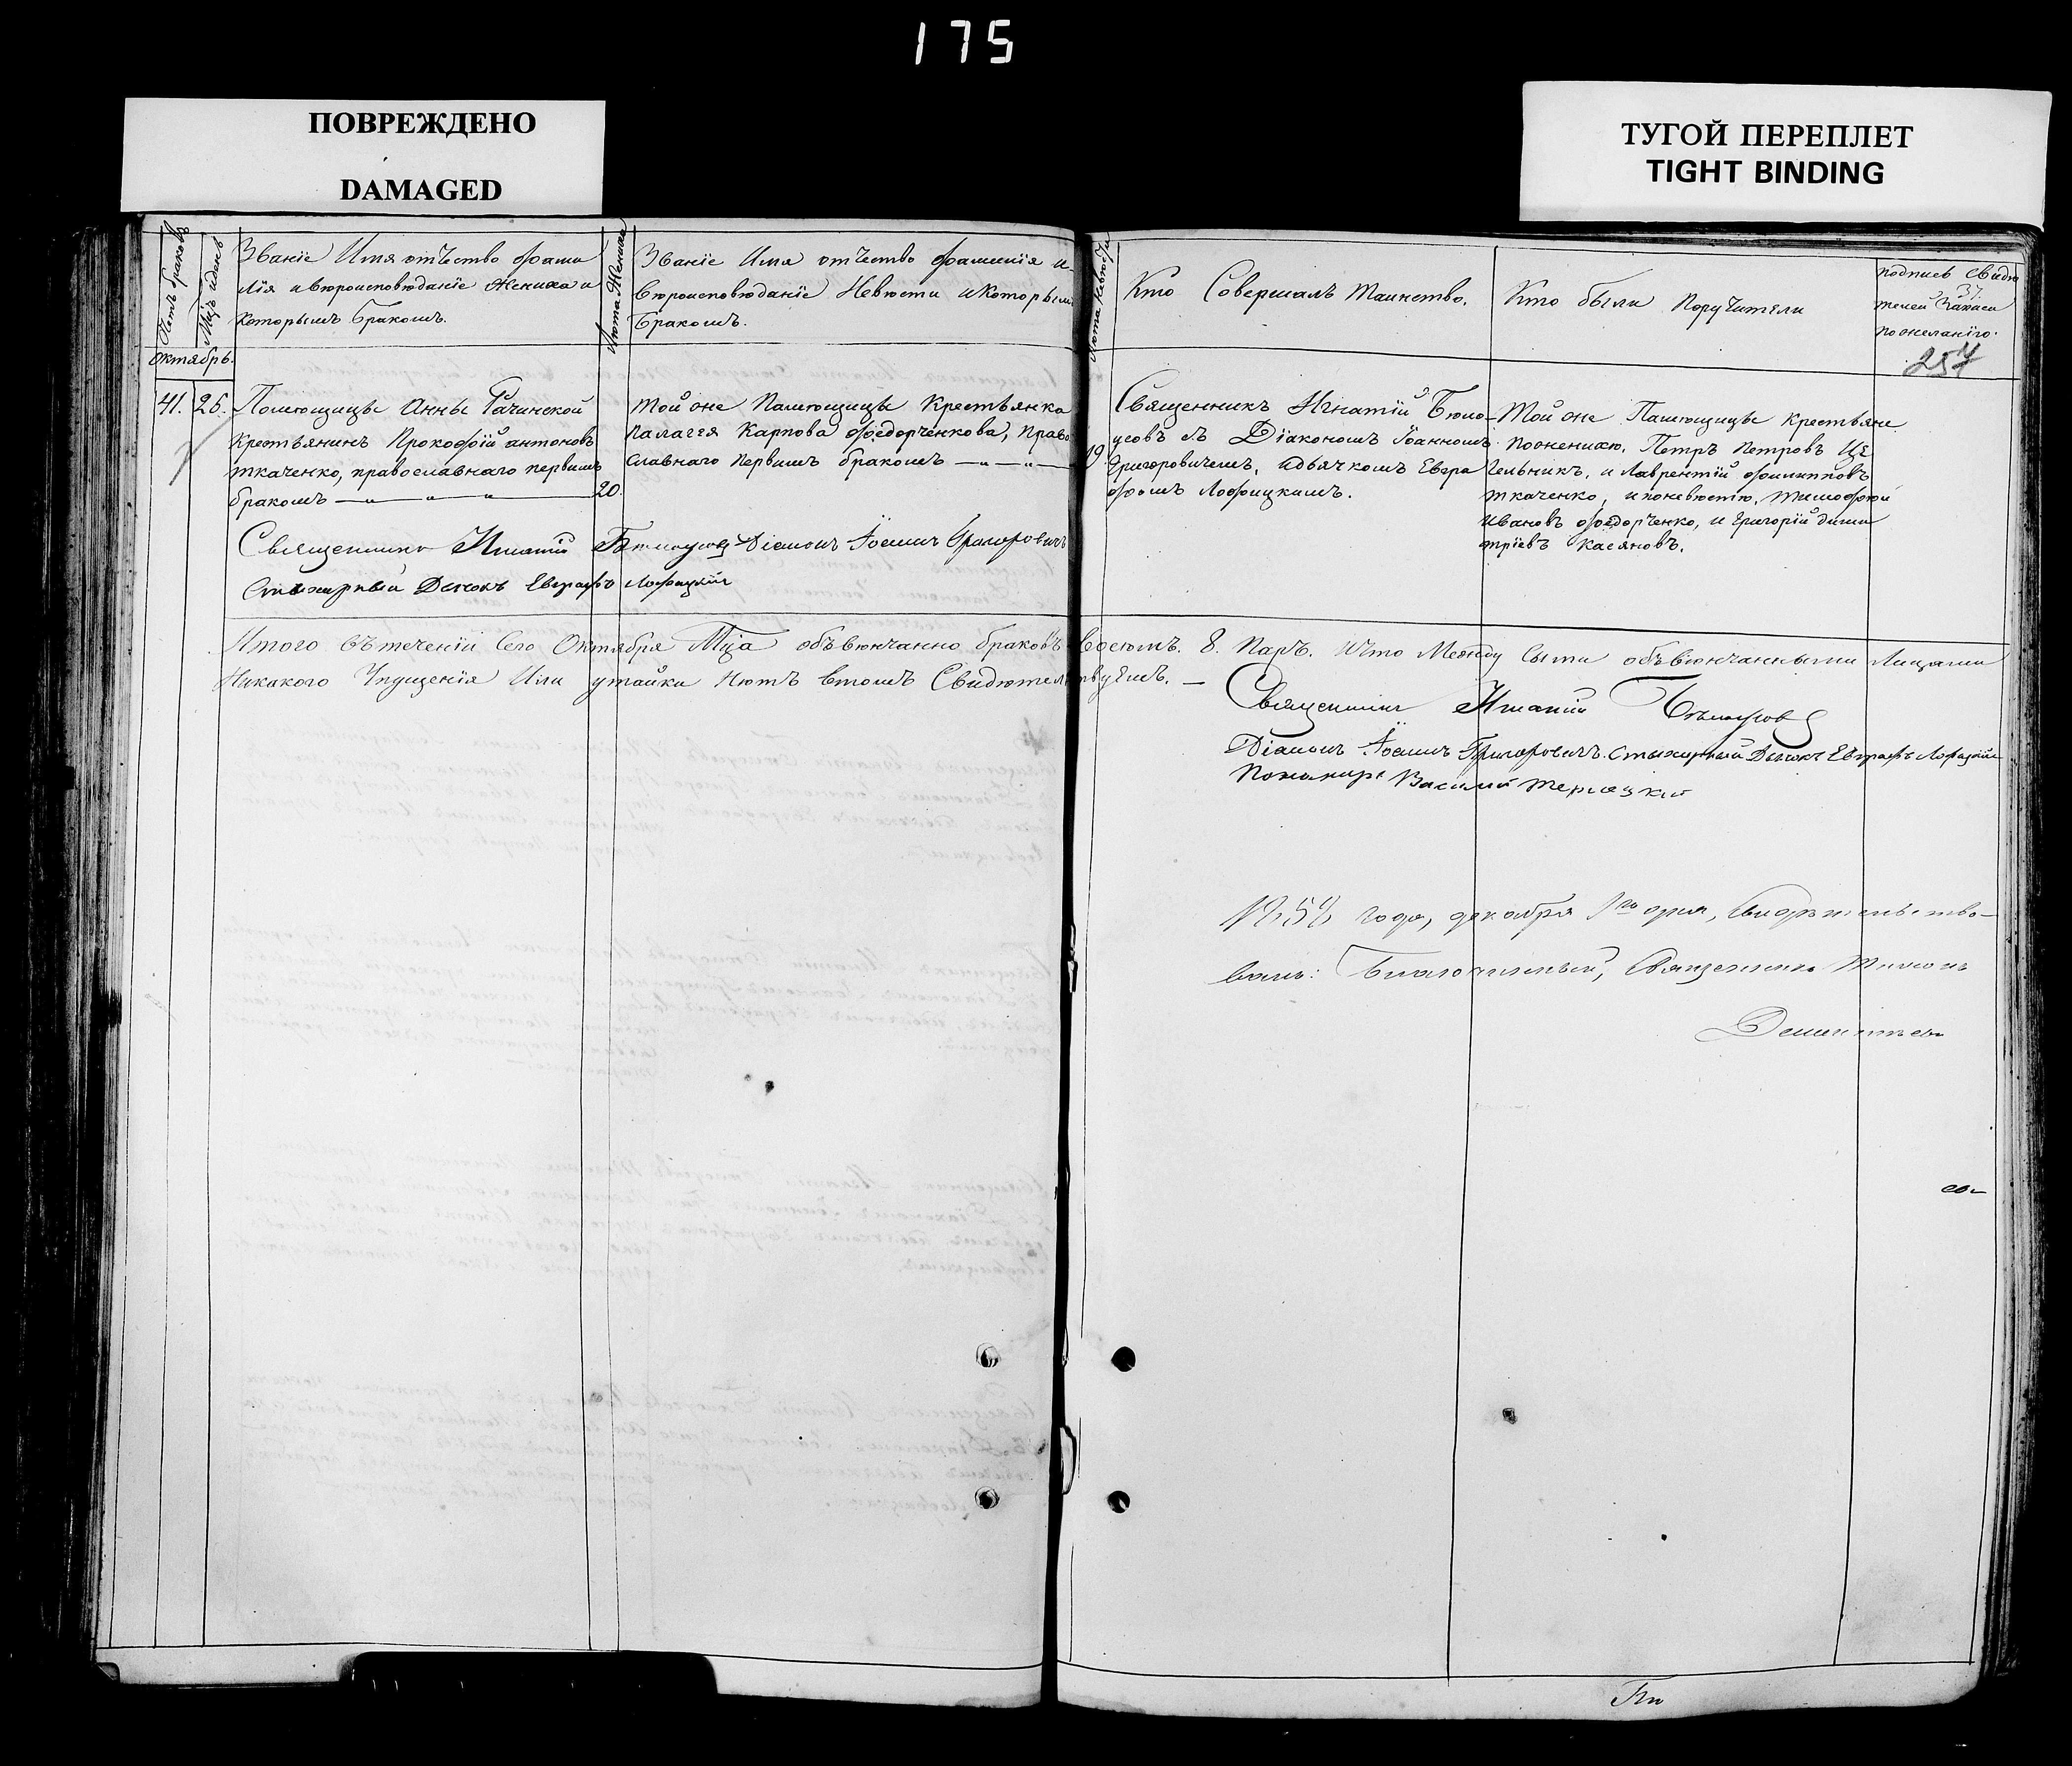 175
ПОВРЕЖДЕНО
DAMAGED
ТУГОЙ ПЕРЕПЛЕТ
TIGHT BINDING
Мѣц и день
Званіе Имя отчество фами
лія и вѣроисповѣданіе Жениха и
которымъ Бракомъ.
Лѣта Жениха
Званіе Имя отчество фамилія и
вѣроисповѣданіе Невѣсти и которым
Бракомъ.
Лѣта Невѣсти
Кто Совершалъ Таинство.
Кто были Поручители
подпись свидѣ
телей Записи
по желанію.
37
257
Октябрь.
41. 25.
Помѣщицы Анны Рачинской
крестьянинъ Прокофій антоновъ
ткаченко, православнаго первимъ
бракомъ
20.
Той же Памѣщицы Крестьянка
Палагея Карпова федорченкова, Право
славнаго Первимъ бракомъ
19.
Священникъ Игнатій Бѣло
усовъ съ Діакономъ Іоанномъ
Григоровичемъ, идьячкомъ Евгра
фомъ Лофицкимъ.
Той же Памѣщицы Крестьяне
пожениху, Петръ Петровъ Це
гельникъ, и Лаврентій филипповъ
ткаченко, и поневѣстѣ, тимофѣй
Ивановъ федорченко, и Григорій дими
тріевъ Касяновъ.
Священникъ Игнатій Бѣлоусовъ Діаконъ Іоаннъ Григоровичъ
Стихирный Дячокъ Евграфъ Лофицкій
Итого Въ теченіи Сего Октября Мца объвѣнчанно браковъ Восемъ. 8. Паръ. Что Между Сыми объвѣнчанными Лицами
Никакого Упущенія Или утайки нѣтъ втомъ Свидѣтельствуемъ.
Священникъ Игнатій Бѣлоусовъ
Діаконъ Іоаннъ Григоровичъ. Стихирный Дячокъ Евграфъ Лофицкій
Пономарь Василій
года, декабря 1го дня, Свидѣтельство-
валъ: Благочинный, Священникъ
Дементьевъ